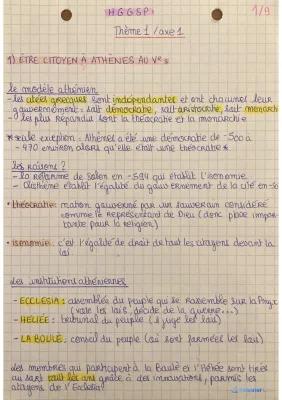 HGGSP:
1/9
Thème 1 / axe 1
1) ÊTRE CITOYEN À ATHÈNES AU Ve s
Le modèle athénien
- les cités grecques sont indépendantes et ont chacunes leur
gouvernement : soit démocratie, soit aristocratie, soit monarchi
- les plus répandus sont la théocratie et la monarchie
* seule exception : Athènes a été une démocratie de -500 à
- 490 environ alors qu'elle était une théocratie *
Les raisons ?
- la réforme de Solon en -594 qui établit l'isonomie
- Clisthène établit l'égalité du gouvernement de la cité en -50
• théocratie : nation gouvernée par un souverain considéré
comme le représentant de Dieu (donc place impor-
tante pour la religion)
• isonomie : c'est l'égalité de droit de tout les citoyens devant la
loi
Les institutions athéniennes
- ECCLESIA : assemblée du peuple qui se rassemble sur la Pnyx
(vote les lois, décide de la guerre...)
- HÉLIÉE : tribunal du peuple (juge les lois)
- LA BOULÊ : conseil du peuple (où sont formées les lois)
Les membres qui participent à la Boulê et l'Héliée sont tirés
au sort tout les ans grâce à des innovations, parmis les
citoyens de l'Ecclésia